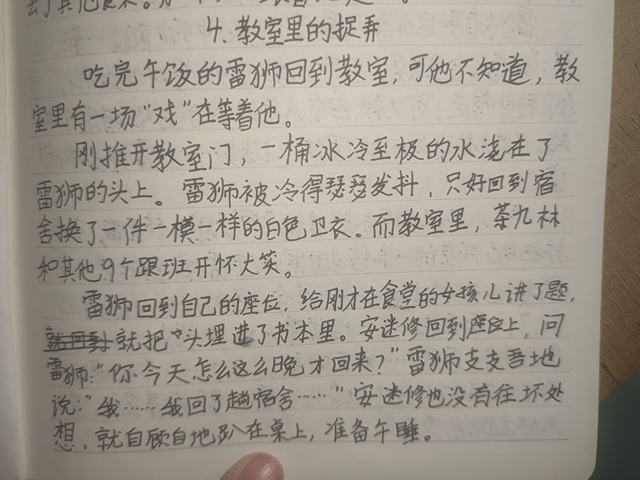 4. 教室里的捉弄
吃完午饭的雷狮回到教室，可他不知道，教
室里有一场“戏”在等着他。
刚推开教室门，一桶冰冷至极的水浇在了
雷狮的头上。雷狮被冷得瑟瑟发抖，只好回到宿
舍换了一件一模一样的白色卫衣。而教室里，茶九林
和其他9个跟班开怀大笑。
雷狮回到自己的座位，给刚才在食堂的女孩儿讲了题，
就把头埋进了书本里。安迷修回到座位上，问
雷狮：“你今天怎么这么晚才回来？”雷狮支支吾吾地
说：“我……我回了趟宿舍……”安迷修也没有往坏处
想，就自顾自地趴在桌上，准备午睡。